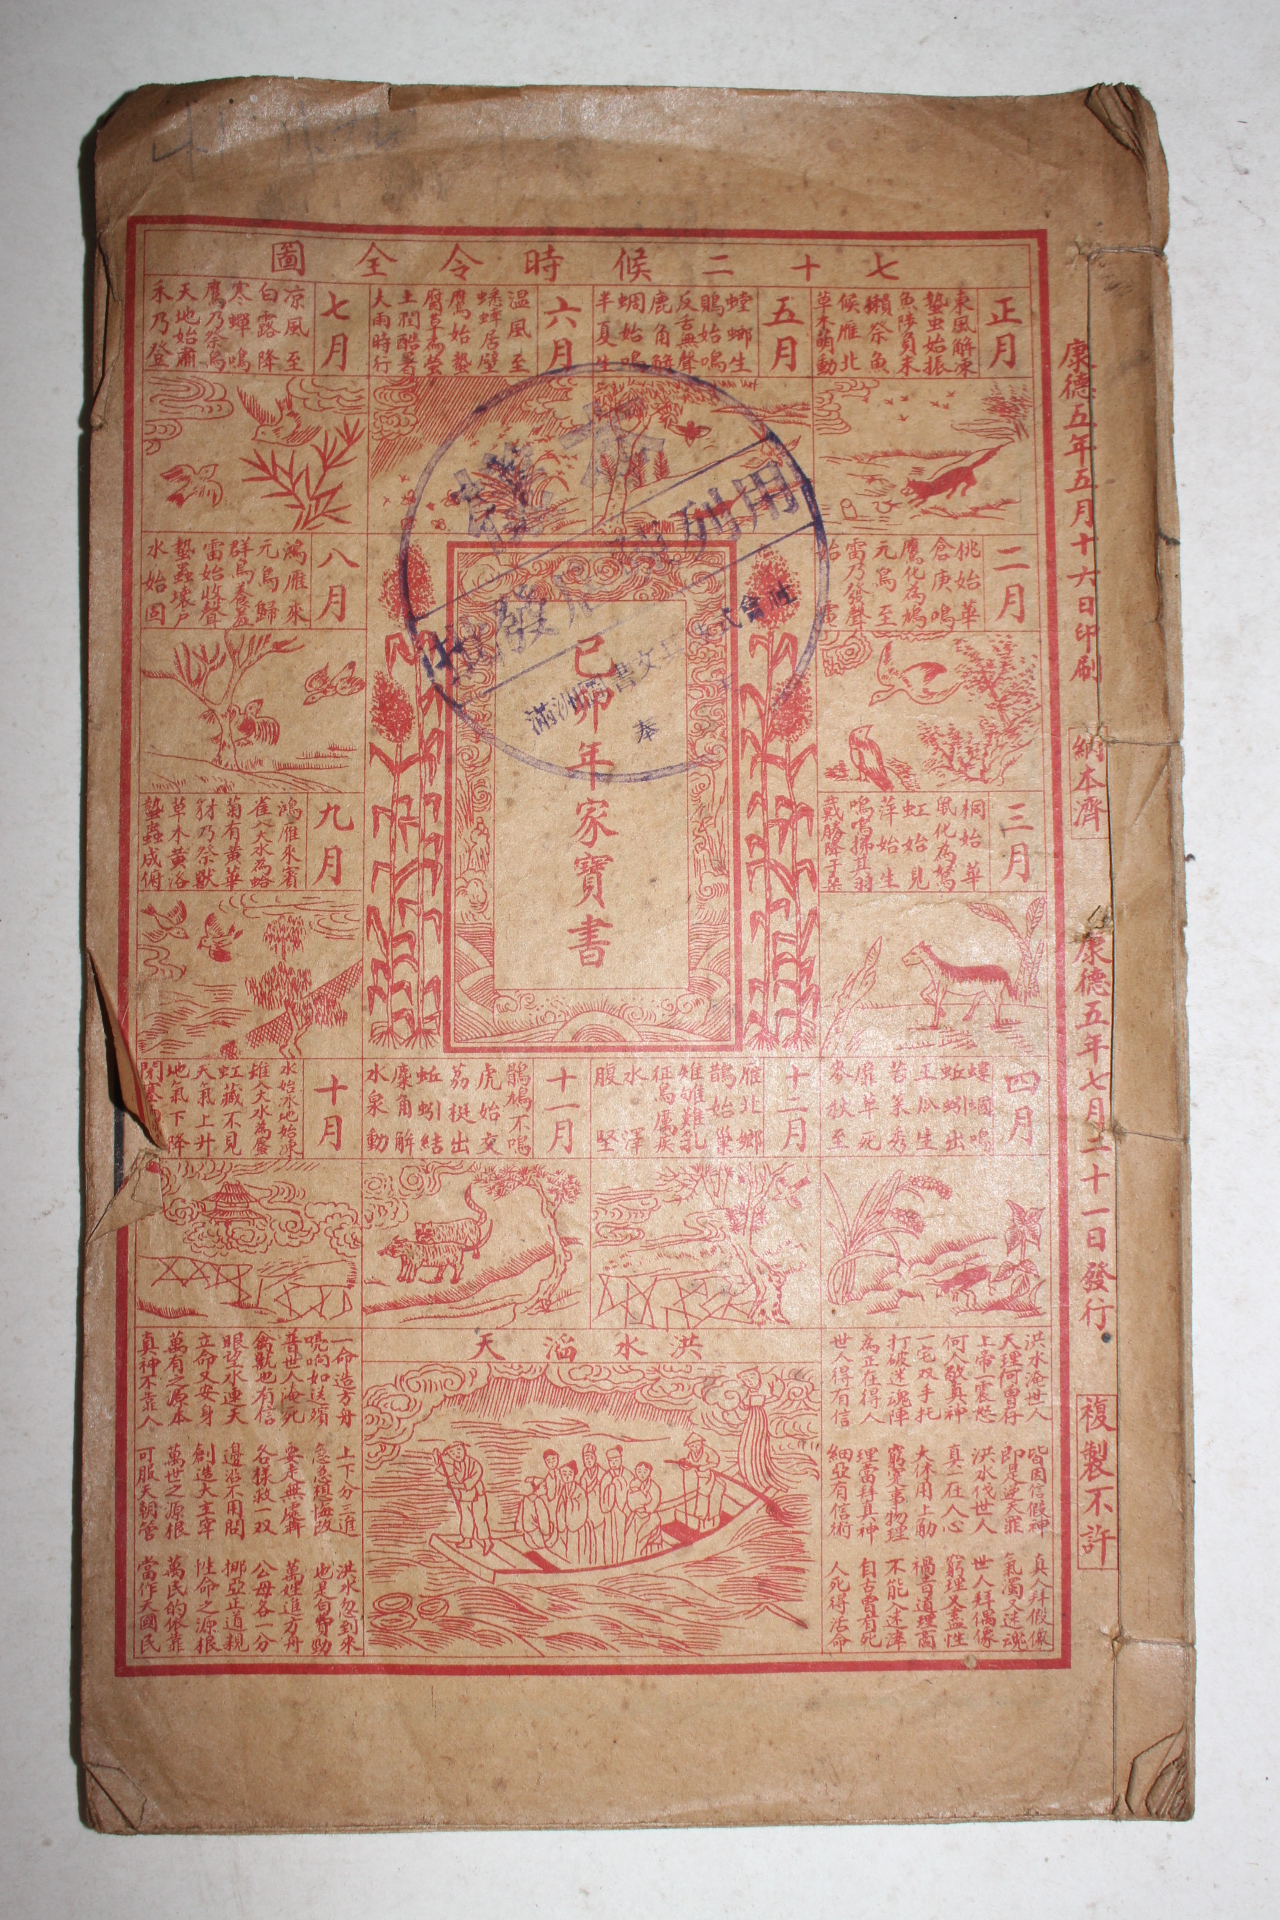 七十二候時令全圖
康德五年五月十六日印刷
納本濟
康德五年七月二十一日發行
複製不許
正月
東風解凍
蟄虫始振
魚陟負氷
獺祭魚
候雁北
草木萌動
二月
桃始華
倉庚鳴
鷹化為鳩
元鳥至
雷乃發聲
始電
三月
桐始華
鼠化為鴽
虹始見
萍始生
鳴鳩拂其羽
戴勝降于桑
四月
螻蟈鳴
蚯蚓出
王瓜生
苦菜秀
靡草死
麥秋至
五月
螳螂生
鵙始鳴
反舌無聲
鹿角解
蜩始鳴
半夏生
六月
溫風至
蟋蟀居壁
鷹始蟄
腐草為螢
土潤酷暑
大雨時行
七月
凉風至
白露降
寒蟬鳴
鷹乃祭鳥
天地始肅
禾乃登
八月
鴻雁來
元鳥歸
群鳥養羞
雷始收聲
蟄蟲壞戶
水始固
九月
鴻雁來賓
雀入大水為蛤
菊有黃華
豺乃祭獸
草木黃落
蟄蟲咸俯
十月
水始冰地始凍
雉入大水為蜃
虹藏不見
天氣上升
地氣下降
十一月
鶡鴠不鳴
虎始交
荔挺出
蚯蚓結
麋角解
水泉動
十二月
雁北鄉
鵲始巢
征鳥厲疾
水澤
腹堅
己卯年家寶書
奉
洪水滔天
洪水淹世人 皆因信假神 真人拜假像
天理何曾存 即是逆天罪 氣濁又迷魂
上帝一震怒 洪水伐世人 世人拜偶像
何人敬真神 真二在人心 窮理又盡性
一宅双手托 大休用上肋 禍音道理高
打破迷魂陣 窮究事物理 不能入迷津
為正在得人 理當拜真神 自古曾有死
世人得有信 細亞有信術 人死得活命
一命造方舟 上下分三進 洪水忽到來
喨响如送殯 急急積悔改 也是自費勁
普世人淹死 要走無處奔 萬類進方舟
禽獸也有信 各樣救一双 公母各一分
眼望水連天 邊沿不用問 挪亞正道親
立命又安身 創造大主宰 性命之源根
萬有之源本 萬世之源根 萬民的依靠
真神不靠人 可服天朝管 當作天國民